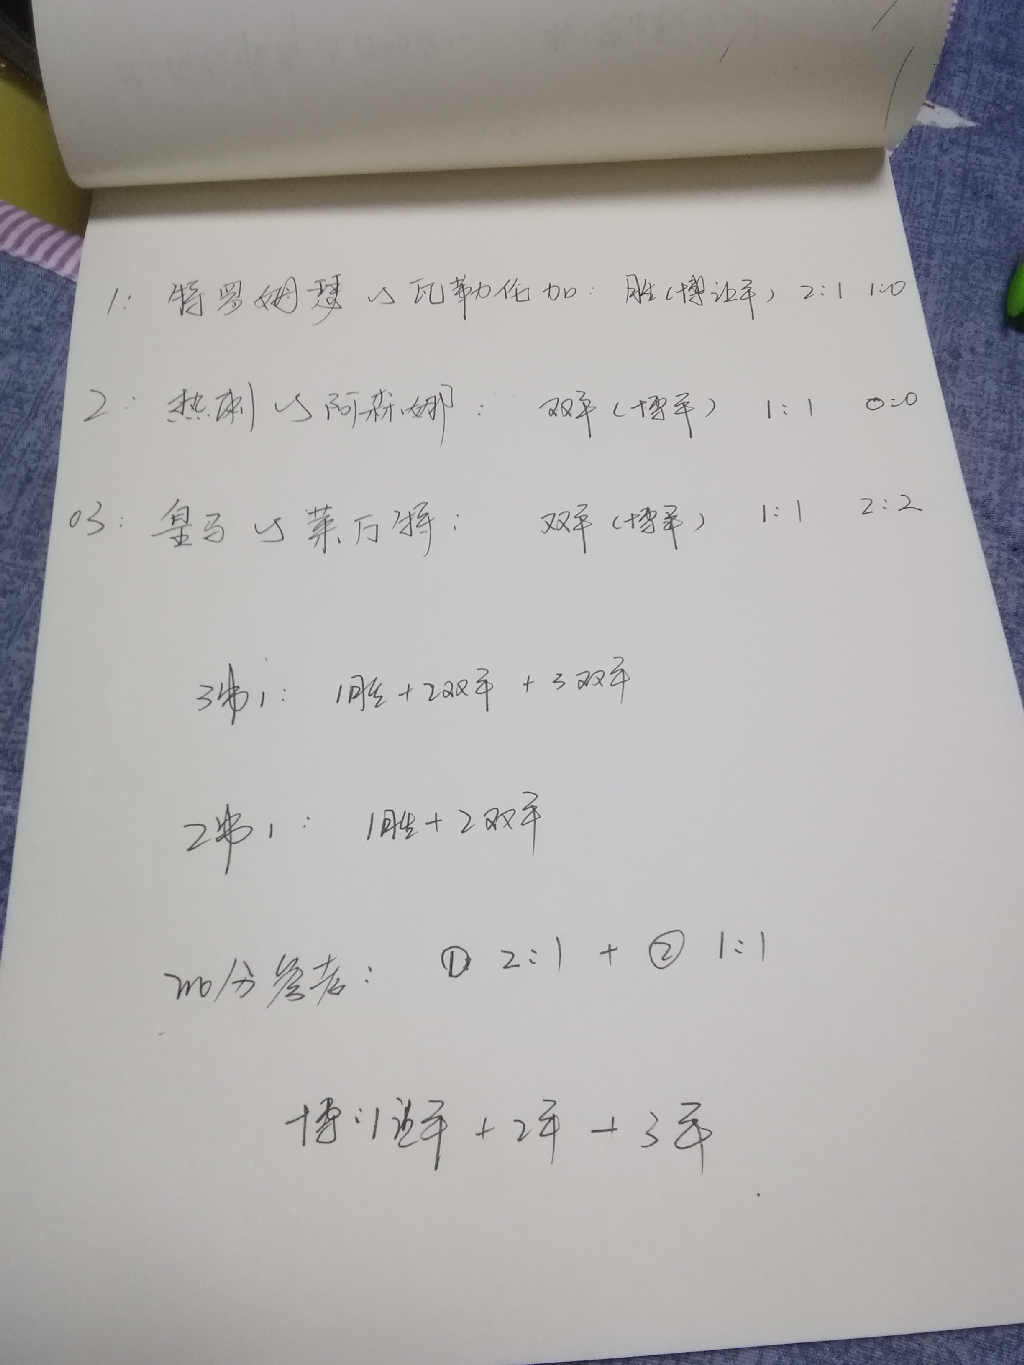 1: 特罗姆瑟 vs 瓦勒伦加: 胜(博让平) 2:1 1:0
2: 热刺 vs 阿森娜: 双平(博平) 1:1 0:0
03: 皇马 vs 莱万特: 双平(博平) 1:1 2:2
3串1: 1胜+2双平+3双平
2串1: 1胜+2双平
分参考: ① 2:1 + ② 1:1
博:1让平+2平+3平